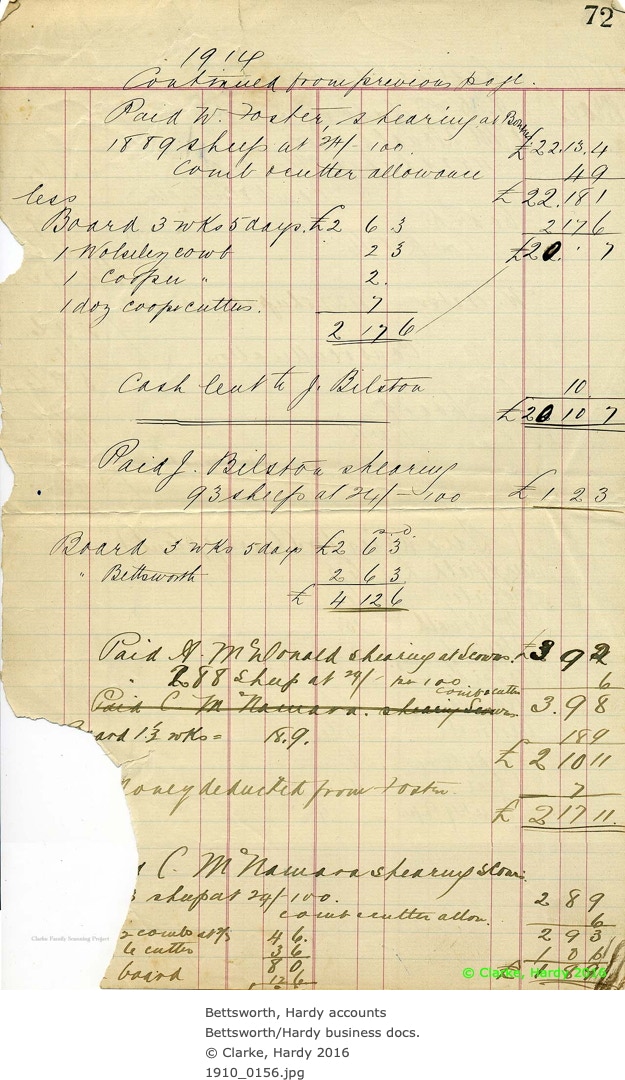 72
1914
Continued from previous page.
Paid W. Foster, shearing at
1889 sheep at 24/- 100. £22.13.4
Comb & cutter allowance 4 9
£22.18 1
less
Board 3 wks 5 days. £2 6 3 2 17 6
1 Wolseley comb 2 3 £20. . 7
1 Cooper " 2.
1 doz coopr cutters. 7
2 17 6
Cash lent to J. Bilston 10
£20 10 7
Paid J. Bilston shearing
93 sheep at 24/- 100 £ 1 2 3
Board 3 wks 5 days £2 6 3
" Bettsworth 2 6 3
£ 4 12 6
Paid A. McDonald shearing at 3 9 2
288 sheep at 24/- per 100 6
comb & cutter
Paid C McNamara. shearing 3. 9 8
1½ wks = 18.9. 18 9
£ 2 10 11
Money deducted from Foster. 7
£ 2 17 11.
C. McNamara shearing
sheep at 24/- 100. 2 8 9
comb & cutter allow. 6
combs at 4 6. 2 9 3
cutter 3 6
8 0
board
Clarke Family Scanning Project
© Clarke, Hardy 2016
Bettsworth, Hardy accounts
Bettsworth/Hardy business docs.
© Clarke, Hardy 2016
1910_0156.jpg